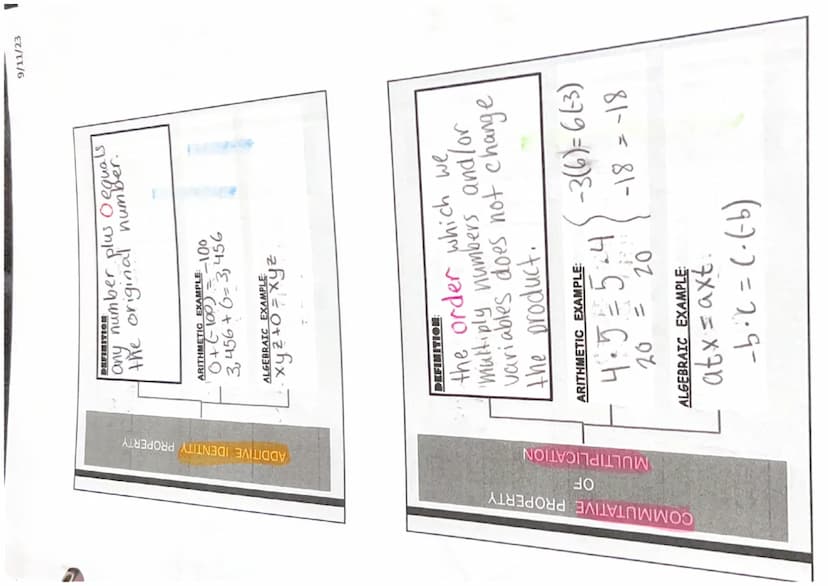 9/11/23
ADDITIVE IDENTITY PROPERTY
DEFINITION
any number plus 0 equals
the original number.
ARITHMETIC EXAMPLE:
0+(-100) = -100
3,456+0=3,456
ALGEBRAIC EXAMPLE
xyz+0=xyz
COMMUTATIVE PROPERTY
OF
MULTIPLICATION
DEFINITION:
the order which we
multiply numbers and/or
variables does not change
the product.
ARITHMETIC EXAMPLE:
4·5=5·4 -3(6)=6(-3)
20 = 20 -18 = -18
ALGEBRAIC EXAMPLE:
atx=axt.
-b·c=c·(-b)